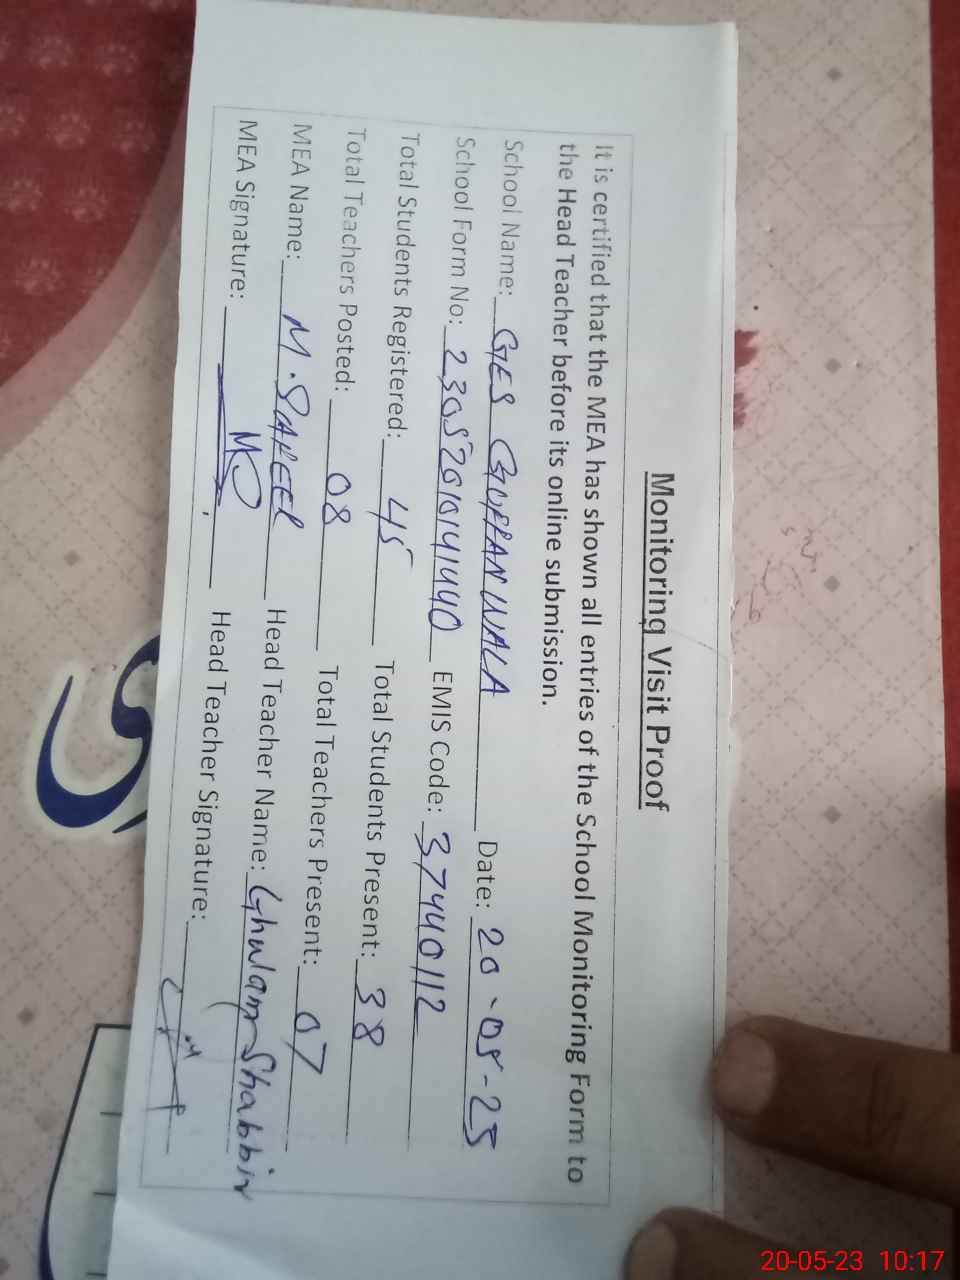 Monitoring Visit Proof
It is certified that the MEA has shown all entries of the School Monitoring Form to
the Head Teacher before its online submission.
School Name: GES GORRAN WALA Date: 20-05-25
School Form No: 230520141440 EMIS Code: 37440112
Total Students Registered: 45 Total Students Present: 38
Total Teachers Posted: 08 Total Teachers Present: 07
MEA Name: M. SAFEER Head Teacher Name: Ghulam Shabbir
MEA Signature: Head Teacher Signature:
20-05-23 10:17